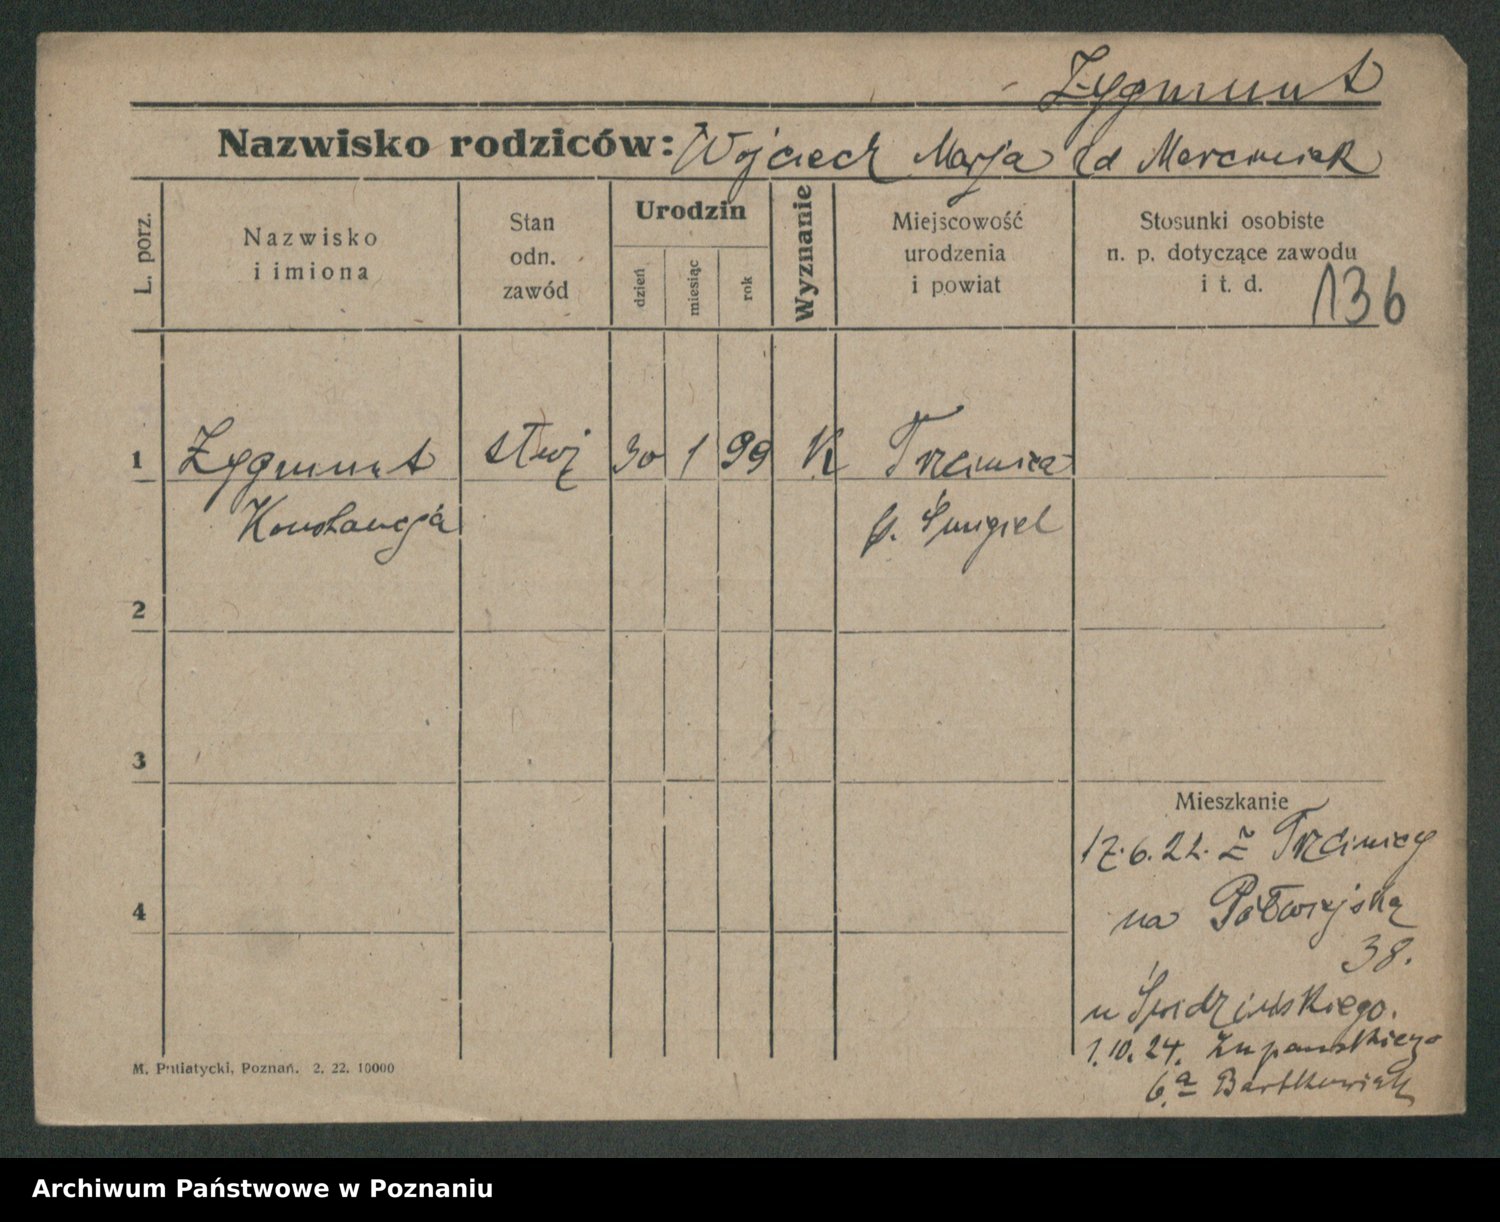 Zygmunt
Nazwisko rodziców: Wojciech Marja Marciniak
L. porz.
Nazwisko
i imiona
Stan
odn.
zawód
Urodzin
dzień
miesiąc
rok
Wyznanie
Miejscowość
urodzenia
i powiat
Stosunki osobiste
n. p. dotyczące zawodu
i t. d.
136
1 Zygmunt 30 1 99 K Trzcinica
Konstancja p. Śmigiel
2
3
Mieszkanie
17.6.22. z Trzcinicy
4
na Półwiejską
38.
u Świdzińskiego.
1.10.24. Żupańskiego
6.a Bartkowiak
M. Putiatycki, Poznań. 2. 22. 10000
Archiwum Państwowe w Poznaniu